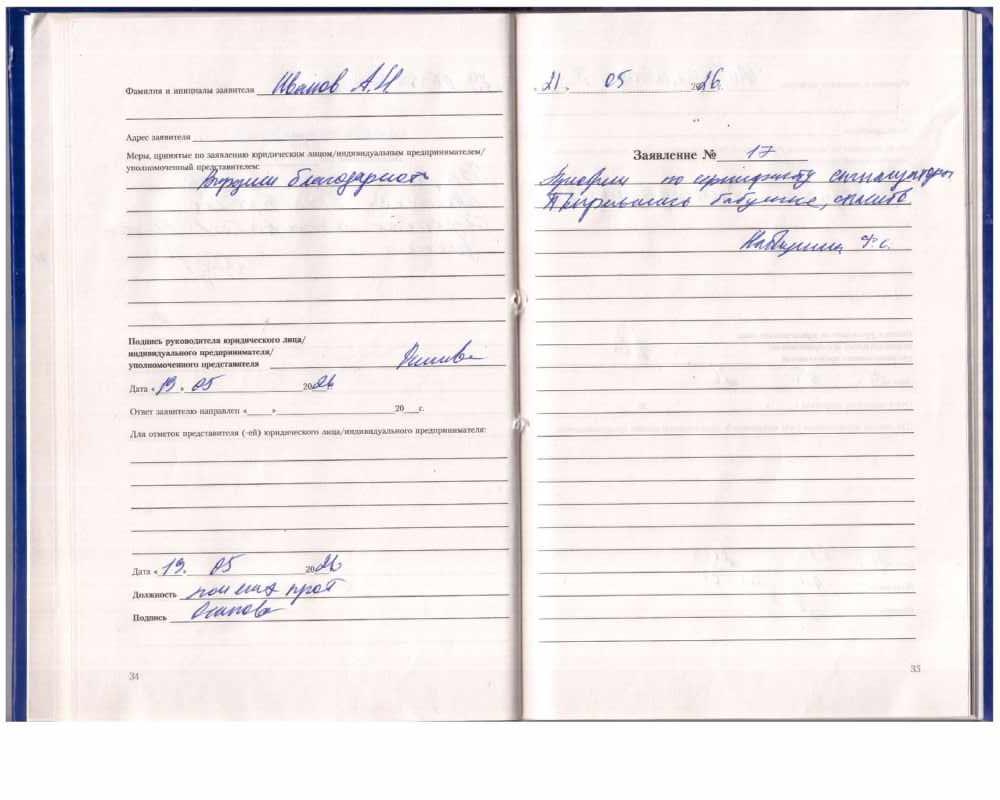 Фамилия и инициалы заявителя Иванов А.Н
Адрес заявителя
Меры, принятые по заявлению юридическим лицом/индивидуальным предпринимателем/
уполномоченный представителем:
благодарность
Подпись руководителя юридического лица/
индивидуального предпринимателя/
уполномоченного представителя
Дата «19» 05 2026
Ответ заявителю направлен «___»___20___г.
Для отметок представителя (-ей) юридического лица/индивидуального предпринимателя:
Дата «19» 05 2026
Должность
Подпись Осипова
34
21. 05 2026г.
Заявление № 17
по сертификату
бабушке, спасибо
35